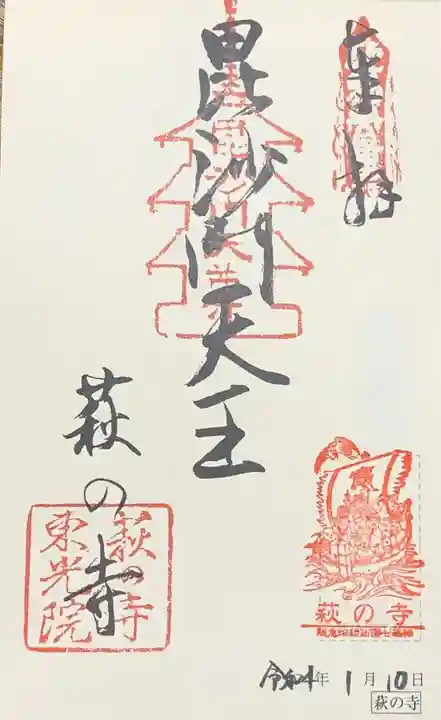 奉拝
毘沙門天王
萩の寺
萩寺
東光院
萩の寺
令和4年1月10日
萩の寺